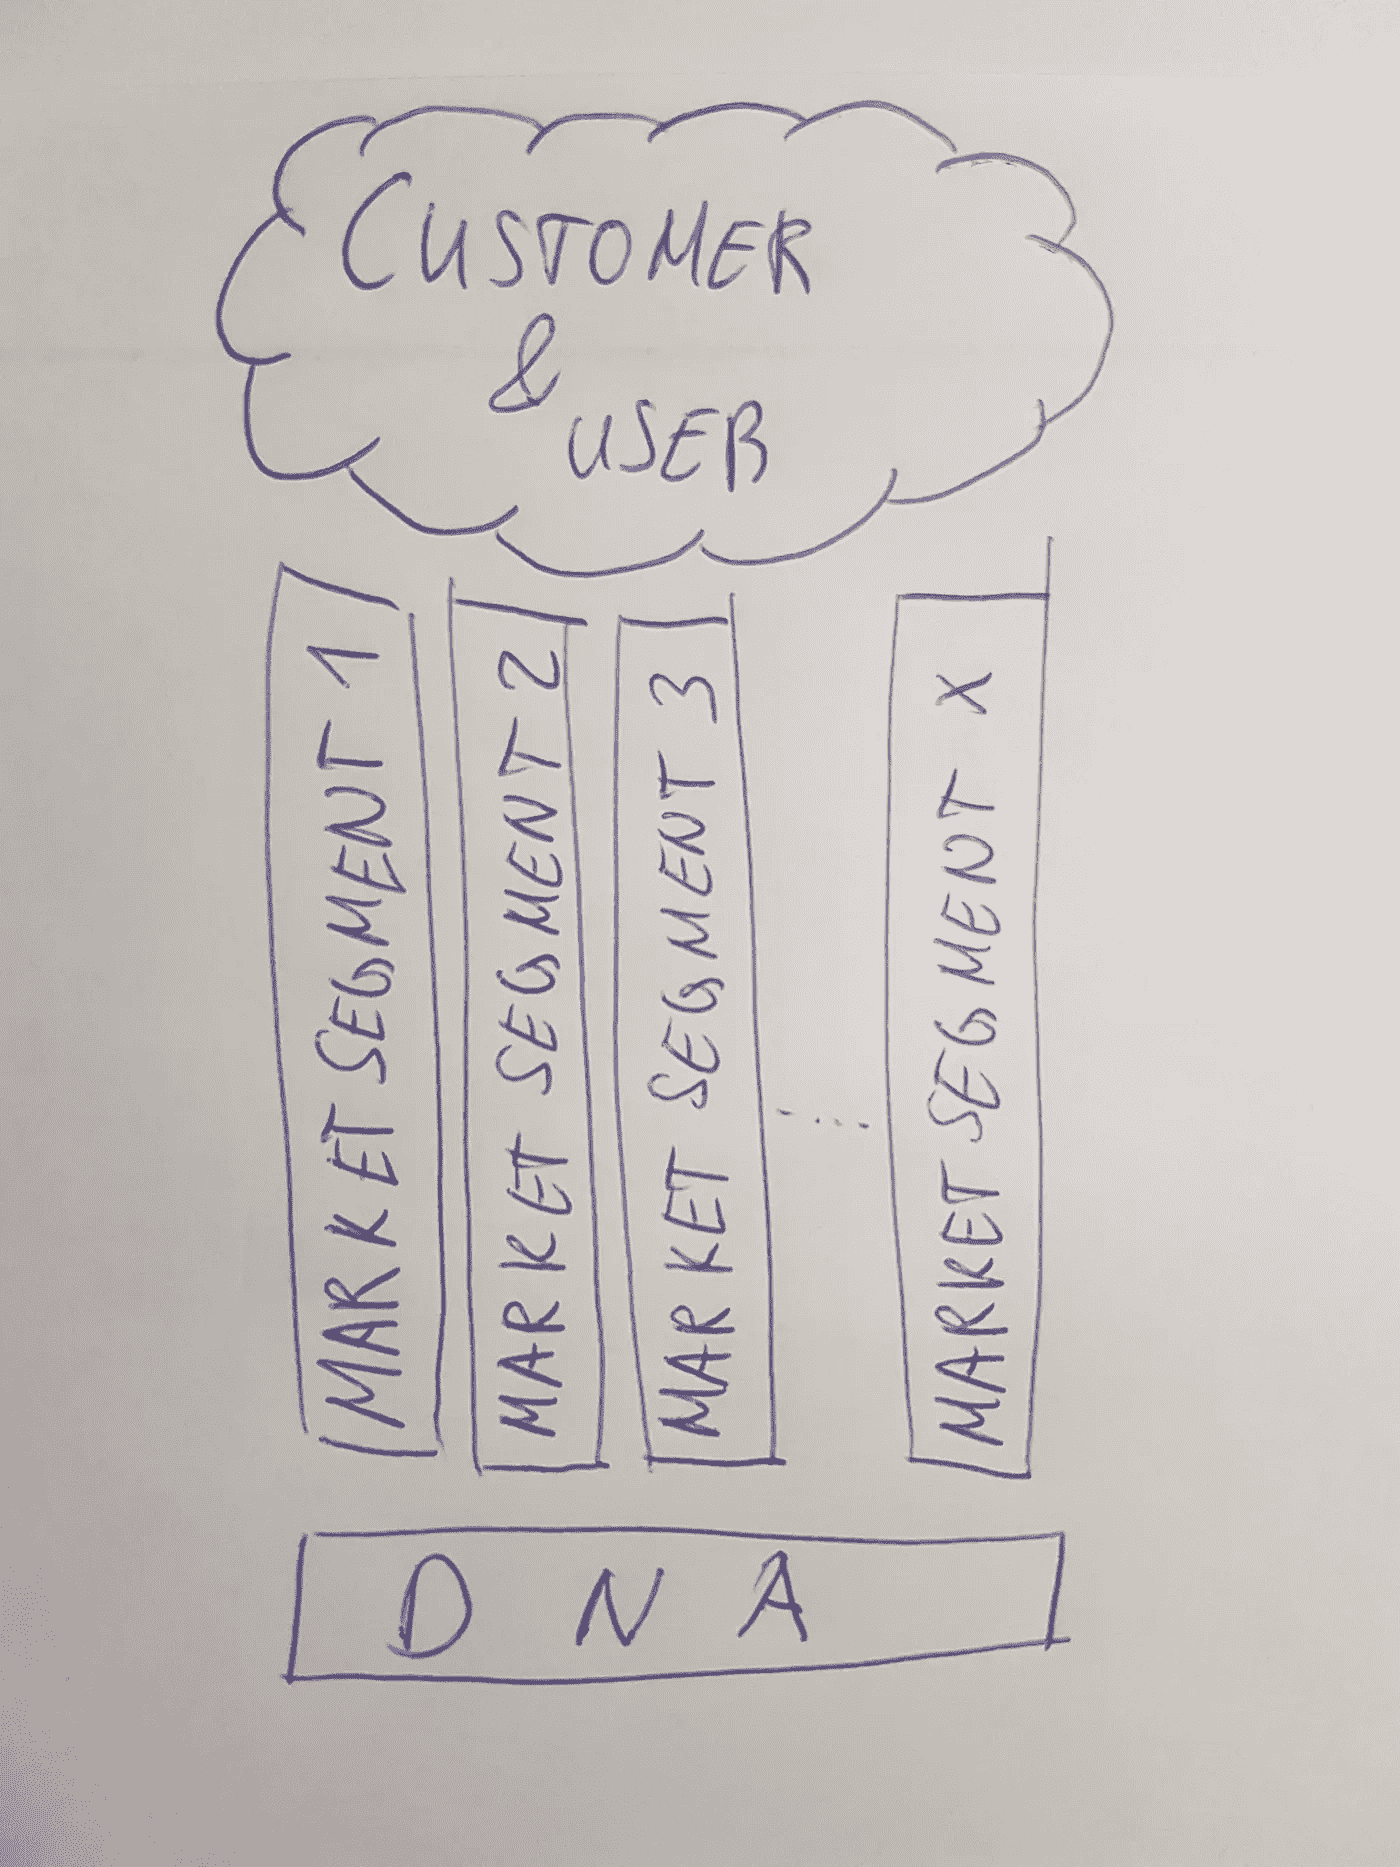 CUSTOMER
&
USER
MARKET SEGMENT 1
MARKET SEGMENT 2
MARKET SEGMENT 3
....
MARKET SEGMENT X
DNA